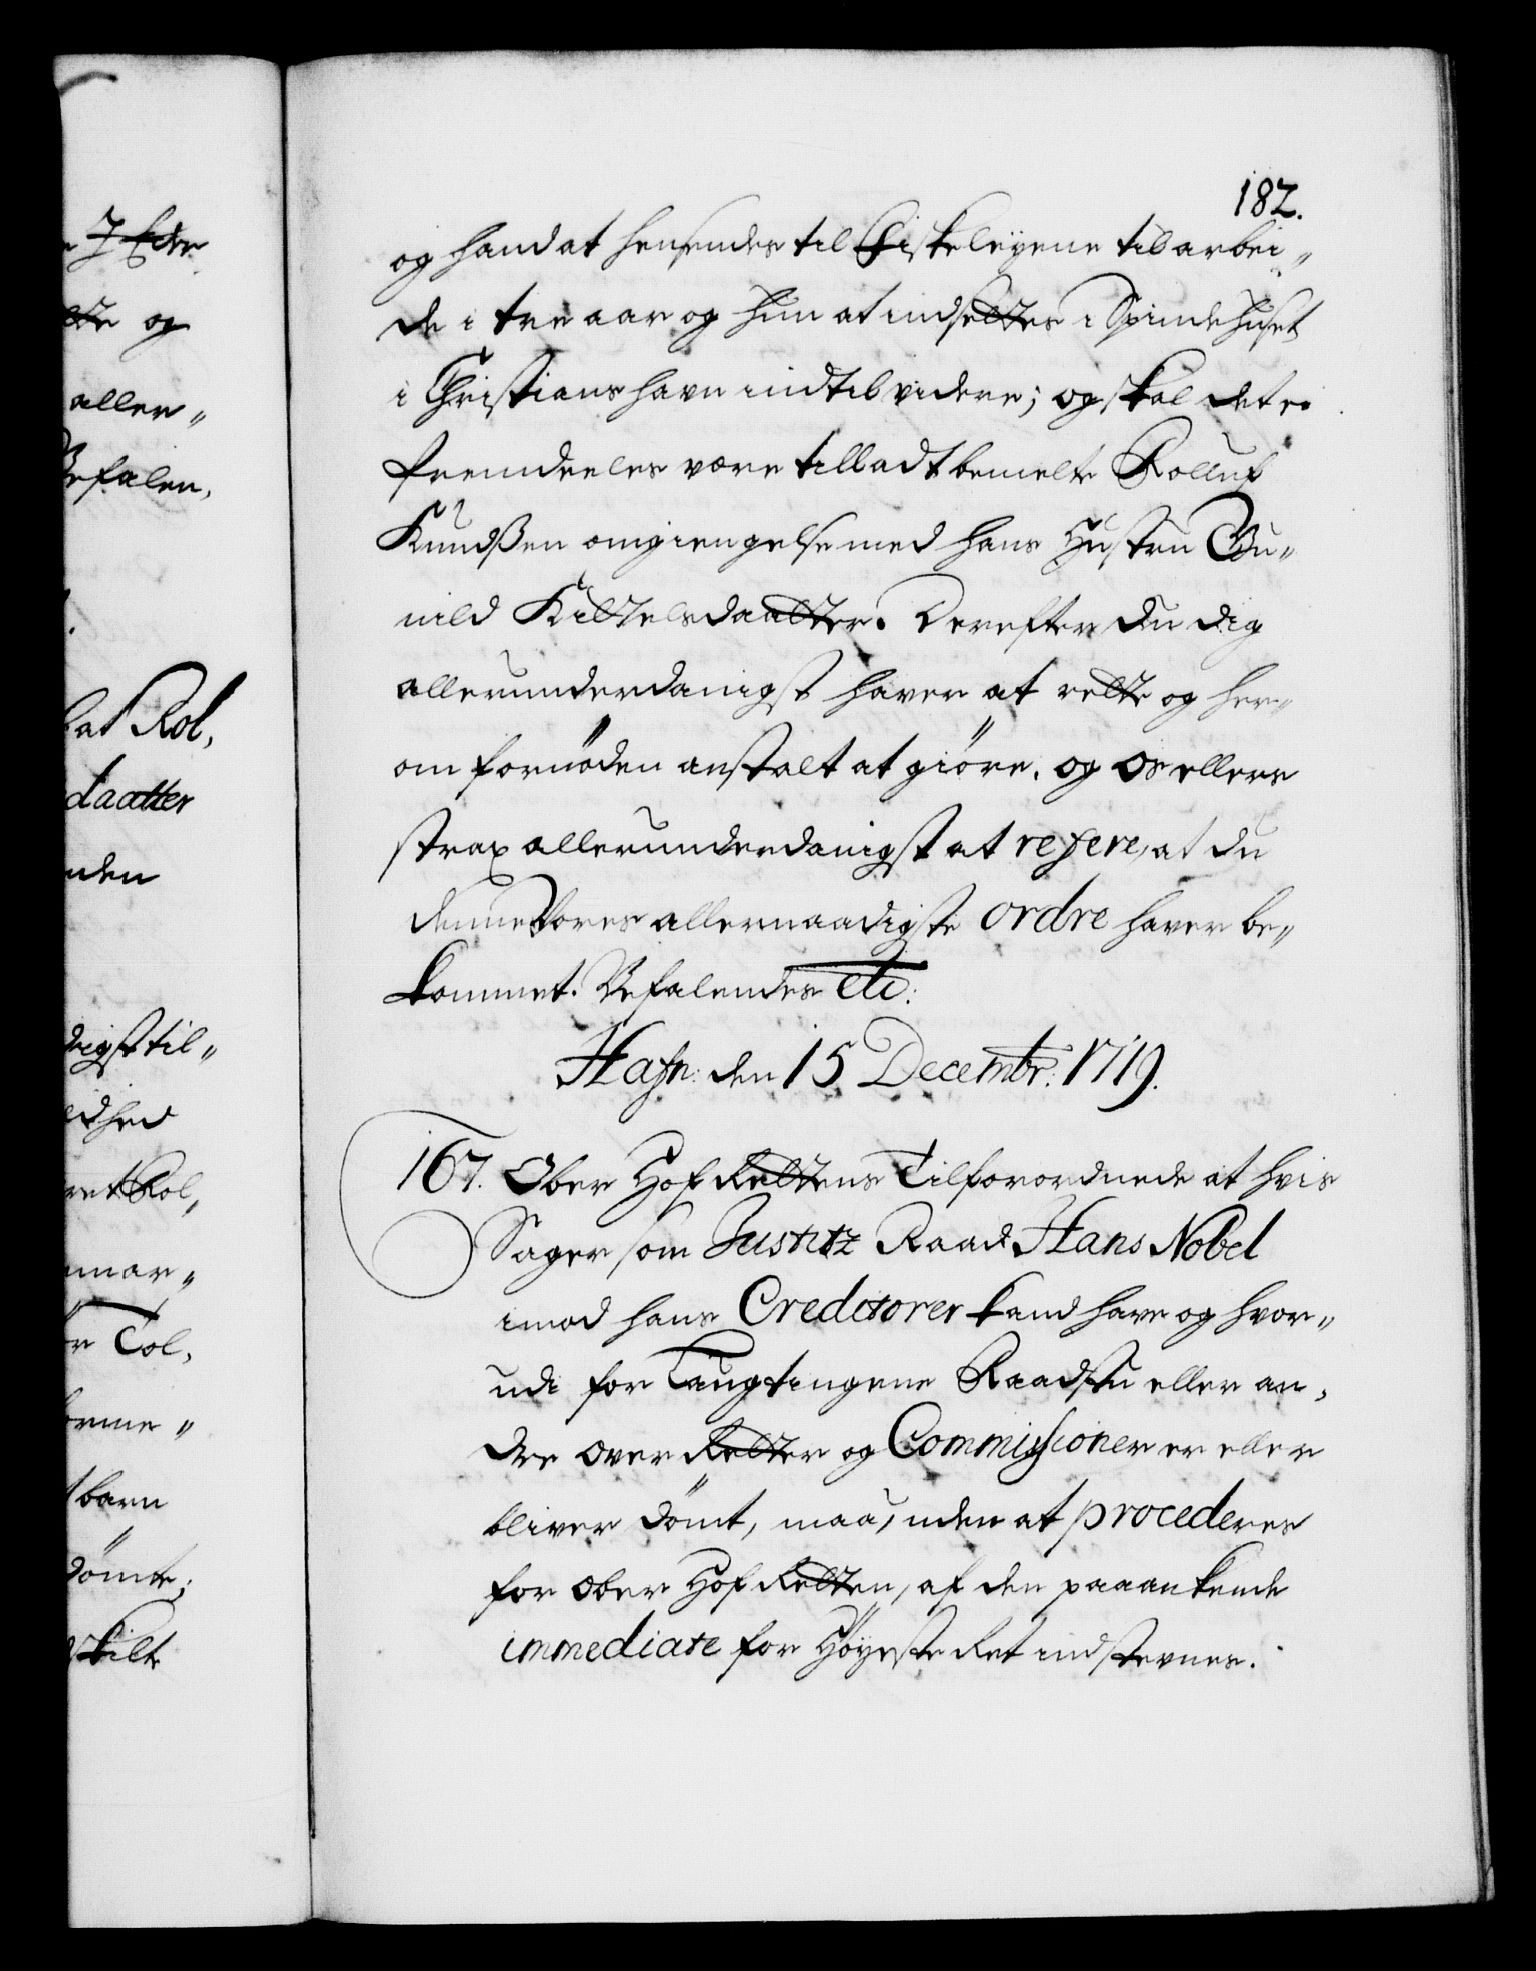 182.
og hand at hensendes til Fiskeleyene til arbei„
de i tre aar og hun at indsettes i Spindehuset
i Christianshavn indtil videre; og skal det ei
fremdeeles være tilladt bemelte Rolluf
Knudßen omgiengelse med hans Hustru Gu„
nild Kittelsdaatter. Derefter du dig
allerunderdanigst haver at rette og her„
om fornöden anstalt at giöre, og os ellers
strax allerunderdanigst at refere, at du
denne Vores allernaadigste ordre haver be„
kommet. Befalendes etc:
Hafn: den 15 Decembr: 1719.
167. Ober Hof Rettens Tilforordnede at hvis
Sager som Justitz Raad Hans Nobel
imod hans Creditorer kand have og hvor„
udi for Laugtingene Raadstu eller an„
dre over Retter og Commissioner er eller
bliver dömt, maa, uden at procederes
for ober Hof Retten, af den paaankende
immediate for Höyeste Ret indstevnes.
J Eder
og
aller„
Befalen,
at Rol,
daatter
nden
digst til„
ret Rol„
Tol,
barn
dömte;
skilt